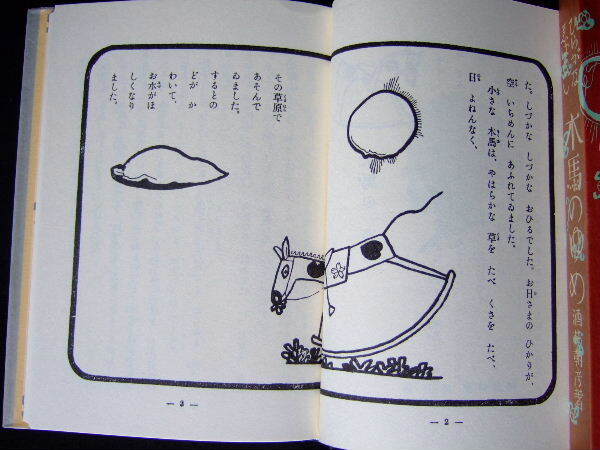 た。しづかな しづかな おひるでした。お日さまの ひかりが、
空 いちめんに あふれてゐました。
小さな 木馬は、やはらかな 草を たべ くさを たべ、
日 よねんなく、
その草原で
あそんで
ゐました。
するとの
どが か
わいて、
お水がほ
しくなり
ました。
— 2 —
— 3 —
木馬のゆめ
酒井朝彦著